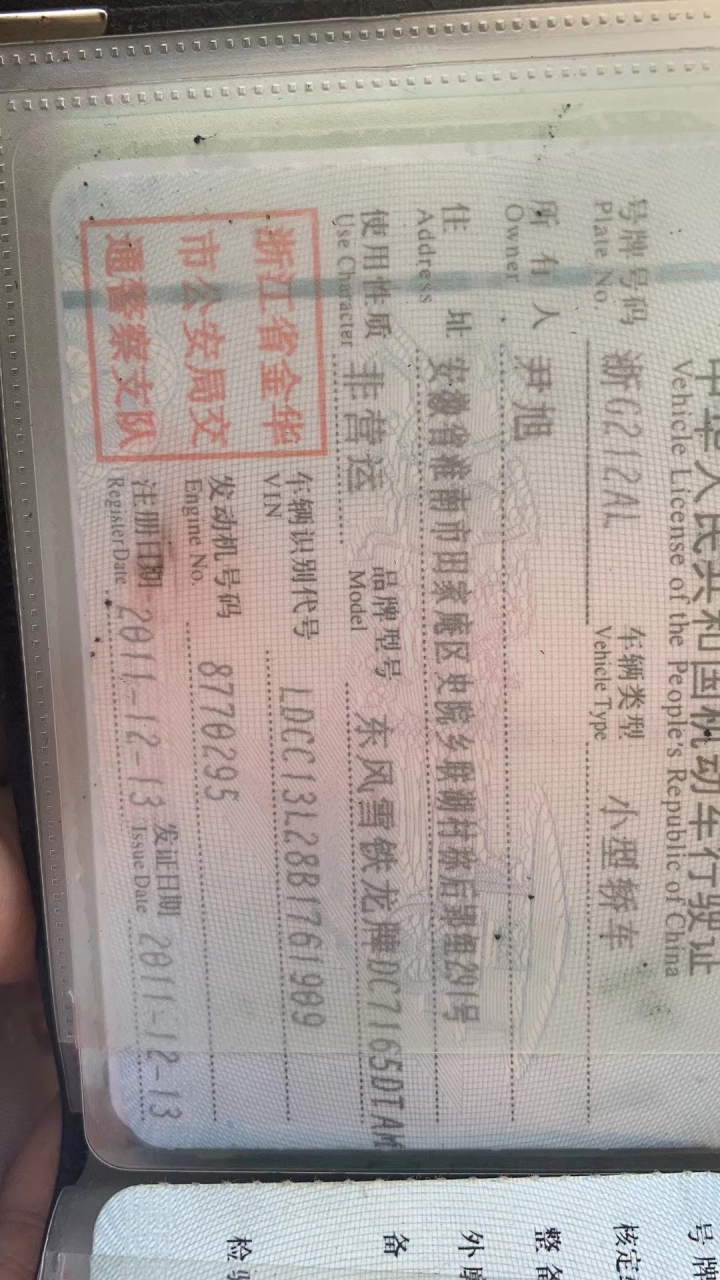 中华人民共和国机动车行驶证
Vehicle License of the People's Republic of China
号牌号码 浙G212AL 车辆类型 小型轿车
Plate No. Vehicle Type
所有人 尹旭
Owner
住址 安徽省淮南市田家庵区史院乡联湖村陈后郢组291号
Address
使用性质 非营运 品牌型号 东风雪铁龙牌DC7165DTAM
Use Character Model
浙江省金华
市公安局交
通警察支队
车辆识别代号 LDCC13L28B1761909
VIN
发动机号码 8770295
Engine No.
注册日期 2011-12-13 发证日期 2011-12-13
Register Date Issue Date
号牌
核定
整备
外
备
检